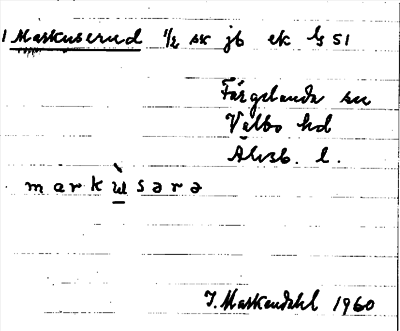 1 Markuserud 1/2 sk jb ek G 51
Färgelanda sn
Valbo hd
Älvsb. l.
markùsərə
J. Markendahl 1960